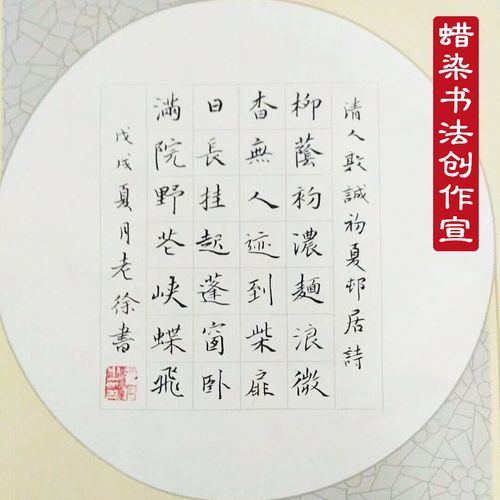 蜡染书法创作宣
清人敦誠初夏邨居詩
柳蔭初濃麵浪微
杳無人迹到柴扉
日長挂起蓬窗卧
滿院野芲峽蝶飛
戊戌夏月老徐書